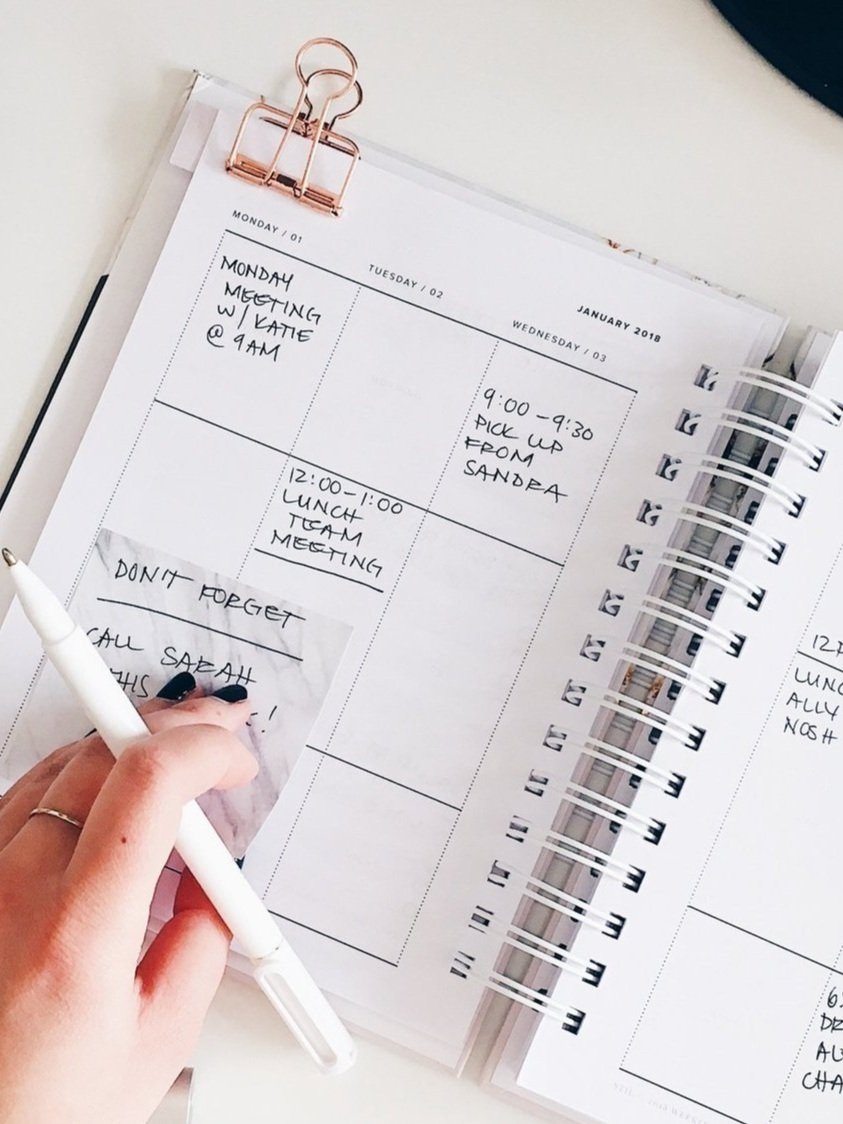 MONDAY / 01
TUESDAY / 02
JANUARY 2018
WEDNESDAY / 03
MONDAY
MEETING
W/ KATIE
@ 9AM
9:00 - 9:30
PICK UP
FROM
SANDRA
12:00 - 1:00
LUNCH
TEAM
MEETING
DON'T FORGET
CALL SARAH
THIS
!
LUNC
ALLY
NOSH